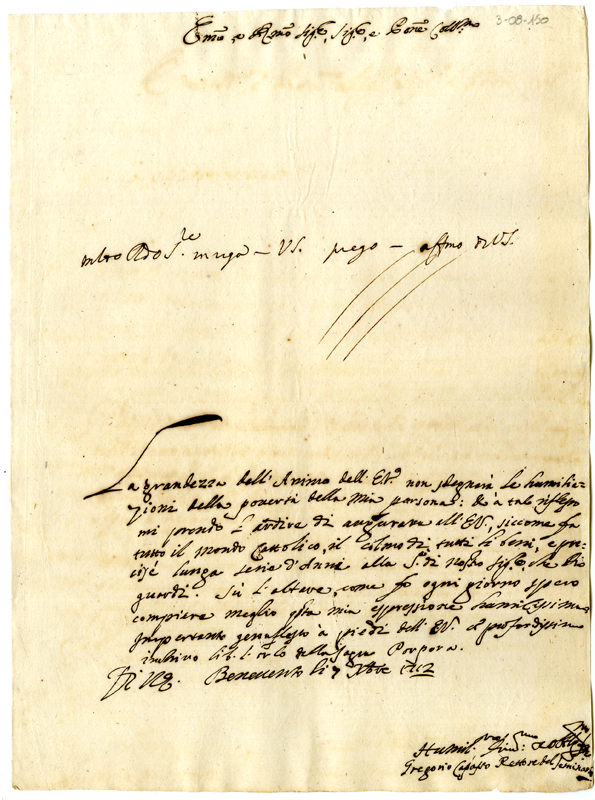 3-08-150
Em̃o, e Rm̃o Sig.e, Sig.e, e Pone Coll.mo
molto Rdo S.re VS. prego – affmo di VS.
La grandezza dell'Animo dell'EV.a non sdegnerà le humilia-
zioni della povertà della mia persona: à tale riflesso
mi prendo l'ardire di augurare all'EV., siccome fa
tutto il mondo Cattolico, il colmo di tutti li beni, e pre-
cise lunga serie d'Anni alla S.tà di Nostro Sig.e, che Dio
guardi. Sù l'altare, come fo ogni giorno spero
compiere meglio q̃sta mia espressione humilissima
genuflesso à piedi dell'EV. profondissimo
inchino l'orlo della Sagra Porpora.
Di VE. Benevento li 7
Humil.
Gregorio Capasso Rettore del Seminario